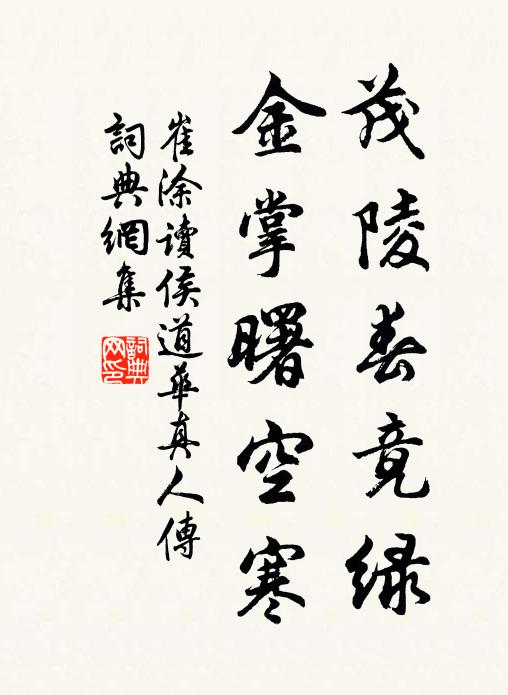 茂陵春竟綠
金掌曙空寒
崔涂讀侯道華真人傳
詞典網集
詞典
网印